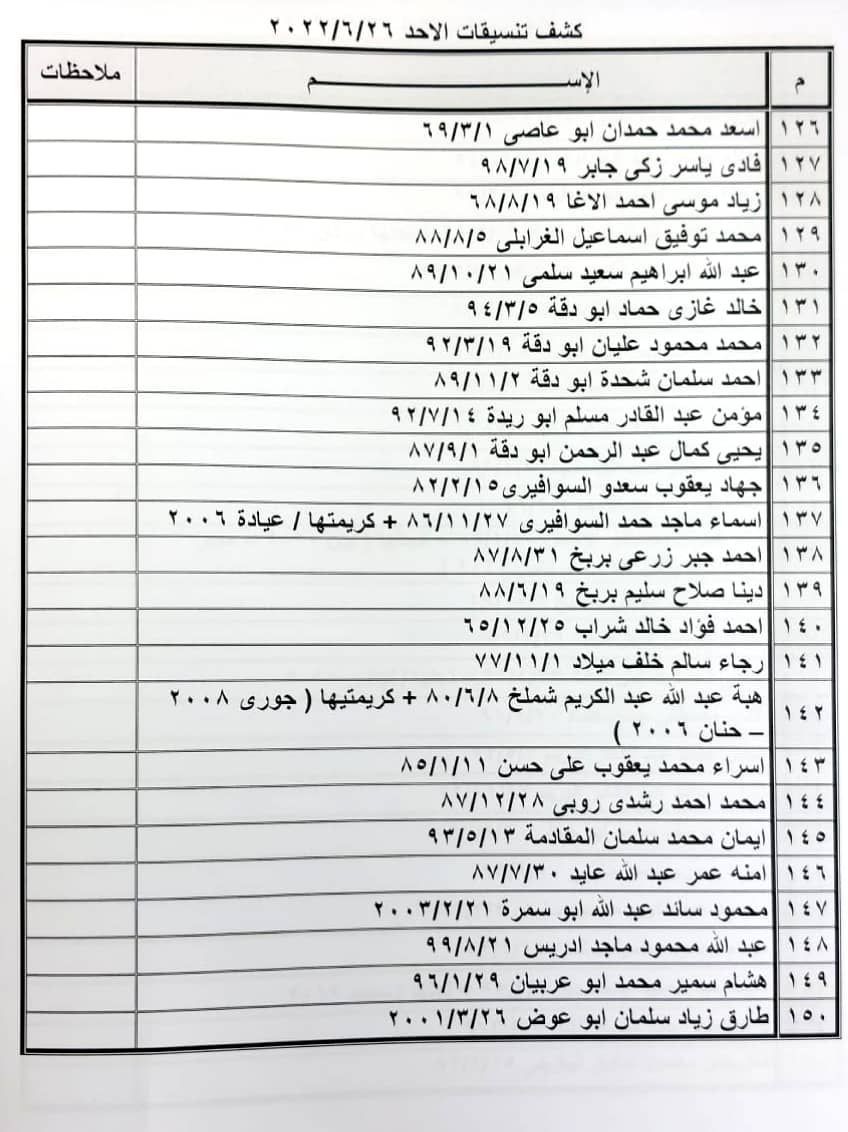 كشف تنسيقات الاحد ٢٠٢٢/٦/٢٦
م الإســـــــــم ملاحظات
١٢٦ اسعد محمد حمدان ابو عاصى ٦٩/٣/١
١٢٧ فادى ياسر زكى جابر ٩٨/٧/١٩
١٢٨ زياد موسى احمد الاغا ٦٨/٨/١٩
١٢٩ محمد توفيق اسماعيل الغرابلى ٨٨/٨/٥
١٣٠ عبد الله ابراهيم سعيد سلمى ٨٩/١٠/٢١
١٣١ خالد غازى حماد ابو دقة ٩٤/٣/٥
١٣٢ محمد محمود عليان ابو دقة ٩٢/٣/١٩
١٣٣ احمد سلمان شحدة ابو دقة ٨٩/١١/٢
١٣٤ مؤمن عبد القادر مسلم ابو ريدة ٩٢/٧/١٤
١٣٥ يحيى كمال عبد الرحمن ابو دقة ٨٧/٩/١
١٣٦ جهاد يعقوب سعدو السوافيرى ٨٢/٢/١٥
١٣٧ اسماء ماجد حمد السوافيرى ٨٦/١١/٢٧ + كريمتها / عيادة ٢٠٠٦
١٣٨ احمد جبر زرعى بربخ ٨٧/٨/٣١
١٣٩ دينا صلاح سليم بربخ ٨٨/٦/١٩
١٤٠ احمد فؤاد خالد شراب ٦٥/١٢/٢٥
١٤١ رجاء سالم خلف ميلاد ٧٧/١١/١
١٤٢ هبة عبد الله عبد الكريم شملخ ٨٠/٦/٨ + كريمتيها ( جورى ٢٠٠٨
– حنان ٢٠٠٦ )
١٤٣ اسراء محمد يعقوب على حسن ٨٥/١/١١
١٤٤ محمد احمد رشدى روبى ٨٧/١٢/٢٨
١٤٥ ايمان محمد سلمان المقادمة ٩٣/٥/١٣
١٤٦ امنه عمر عبد الله عايد ٨٧/٧/٣٠
١٤٧ محمود سائد عبد الله ابو سمرة ٢٠٠٣/٢/٢١
١٤٨ عبد الله محمود ماجد ادريس ٩٩/٨/٢١
١٤٩ هشام سمير محمد ابو عربيان ٩٦/١/٢٩
١٥٠ طارق زياد سلمان ابو عوض ٢٠٠١/٣/٢٦